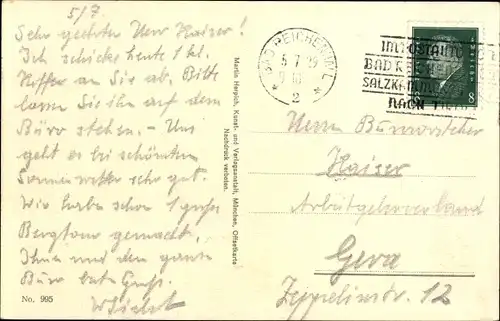 5/7.
Sehr geehrter Herr Kaiser!
Ich schicke heute 1 kl.
Koffer an Sie ab. Bitte
lassen Sie ihn auf dem
Büro stehen. - Uns
geht es bei schönstem
Sonnenwetter sehr gut.
Wir haben schon 1 große
Bergtour gemacht.
Ihnen und dem ganzen
Büro beste Grüße.
No. 995
Martin Herpich, Kunst- und Verlagsanstalt, München, Offsetkarte
Nachdruck verboten.
BAD REICHENHALL
5.7.29
2
IM POSTAUTO
BAD REICHENHALL
SALZKAMMERGUT
NACH TIROL
8
Herrn Bürovorsteher
Kaiser
Arbeitgeberverband
Gera
Zeppelinstr. 12